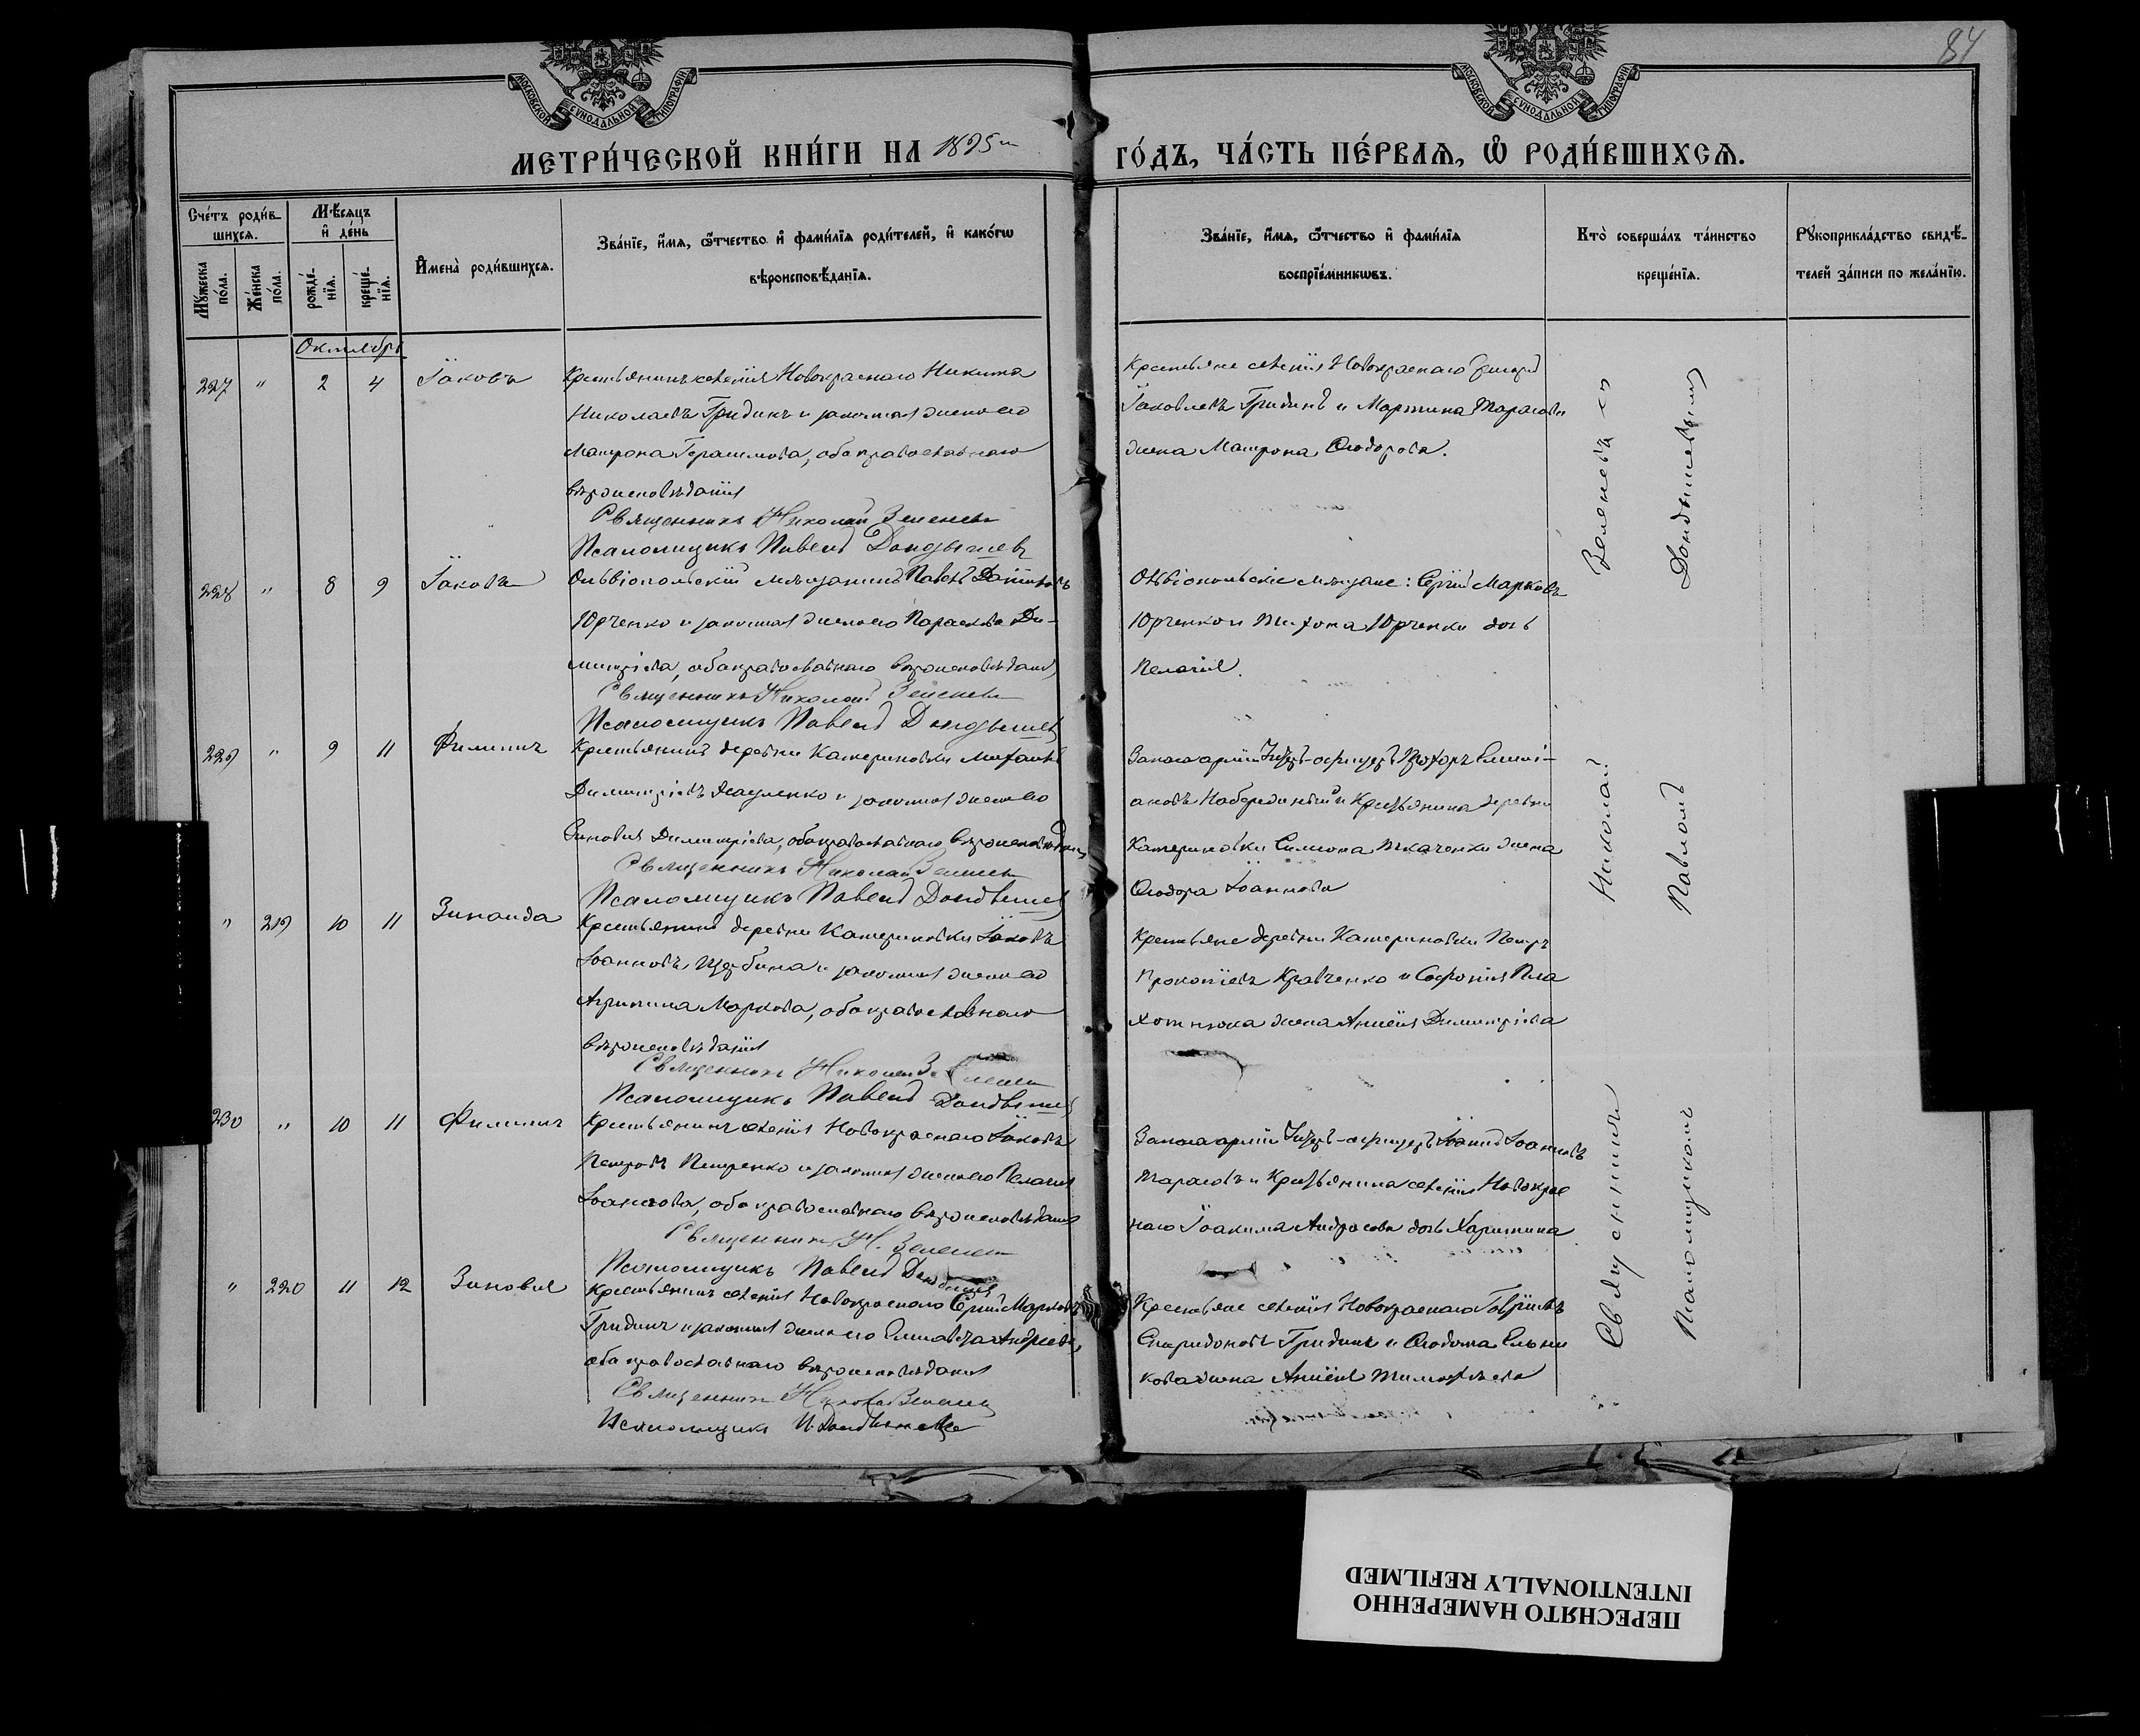 84
МОСКОВСКОЙ СѴНОДАЛЬНОЙ ТИПОГРАФІИ
МОСКОВСКОЙ СѴНОДАЛЬНОЙ ТИПОГРАФІИ
МЕТРИ́ЧЕСКОЙ КНИ́ГИ НА 1895й ГО́ДЪ, ЧА́СТЬ ПЕ́РВАѦ, Ѡ҆ РОДИ́ВШИХСѦ.
Сче́тъ роди́в-
шихсѧ.
Мꙋ́жеска по́ла.
Же́нска по́ла.
Мѣ́сѧцъ и҆ де́нь
рожде́-нїѧ.
креще́-нїѧ.
И҆мена̀ роди́вшихсѧ.
Зва́нїе, и҆́мѧ, ѻ҆́тчество и҆ фами́лїѧ роди́телей, и҆ како́гѡ
вѣроисповѣ́данїѧ.
Зва́нїе, и҆́мѧ, ѻ҆́тчество и҆ фами́лїѧ
воспрїе́мникѡвъ.
Кто̀ соверша́лъ та́инство
креще́нїѧ.
Рꙋкоприкла́дство свидѣ́-
телей за́писи по жела́нїю.
Октябрь
227 " 2 4 Іаковъ
Крестьянинъ селенія Новокраснаго Никита
Николаевъ Гридинъ и законная жена его
Матрона Герасимова, оба православнаго
вѣроисповѣданія
Священникъ Николай Зеленевъ
Псаломщикъ Павелъ Дондышевъ
Крестьяне селенія Новокраснаго Григорій
Іаковлевъ Гридинъ и Мартина Тарасова
жена Матрона Ѳеодорова.
228 " 8 9 Іаковъ
Ольвіопольскій мѣщанинъ Павелъ
Юрченко и законная жена его Параскева Ди-
митріева, оба православнаго вѣроисповѣданія
Священникъ Николай Зеленевъ
Псаломщикъ Павелъ Дондышевъ
Ольвіопольскіе мѣщане: Сергій Марковъ
Юрченко и Тихона Юрченки дочь
Пелагія.
229 " 9 11 Филиппъ
Крестьянинъ деревни Катериновки Михаилъ
Димитріевъ и законная жена его
Зиновія Димитріева, оба православнаго вѣроисповѣданія
Священникъ Николай Зеленевъ
Псаломщикъ Павелъ Дондышевъ
Запаса арміи Унтеръ-офицеръ Прохоръ Емилі-
ановъ и Крестьянина деревни
Катериновки Симеона Ткаченки жена
Ѳеодора Іоаннова
" 219 10 11 Зинаида
Крестьянинъ деревни Катериновки Іаковъ
Іоанновъ Щербина и законная жена его
Агрипина Маркова, оба православнаго
вѣроисповѣданія
Священникъ Николай Зеленевъ
Псаломщикъ Павелъ Дондышевъ
Крестьяне деревни Катериновки Петръ
Прокопіевъ Кравченко и Софонія Пла
хотнюка жена Анисія Димитріева
230 " 10 11 Филиппъ
Крестьянинъ селенія Новокраснаго Іаковъ
Петровъ Петренко и законная жена его Пелагія
Іоаннова, оба православнаго вѣроисповѣданія
Священникъ Н. Зеленевъ
Псаломщикъ Павелъ Дондышевъ
Запаса арміи Унтеръ-офицеръ Іоаннъ Іоанновъ
Тарасовъ и Крестьянина селенія Новокрас
наго Іоакима Андросова дочь Харитина
" 220 11 12 Зиновія
Крестьянинъ селенія Новокраснаго Сергій Марковъ
Гридинъ и законная жена его Елисавета Андреева,
оба православнаго вѣроисповѣданія
Священникъ Николай Зеленевъ
Псаломщикъ П. Дондышевъ
Крестьяне селенія Новокраснаго Гавріилъ
Спиридоновъ Гридинъ и Ѳеодота Ельни
кова жена Анисія Тимоѳеева
Священникъ Николай Зеленевъ съ
Псаломщикомъ Павломъ Дондышевымъ
ПЕРЕСНЯТО НАМЕРЕННО
INTENTIONALLY REFILMED